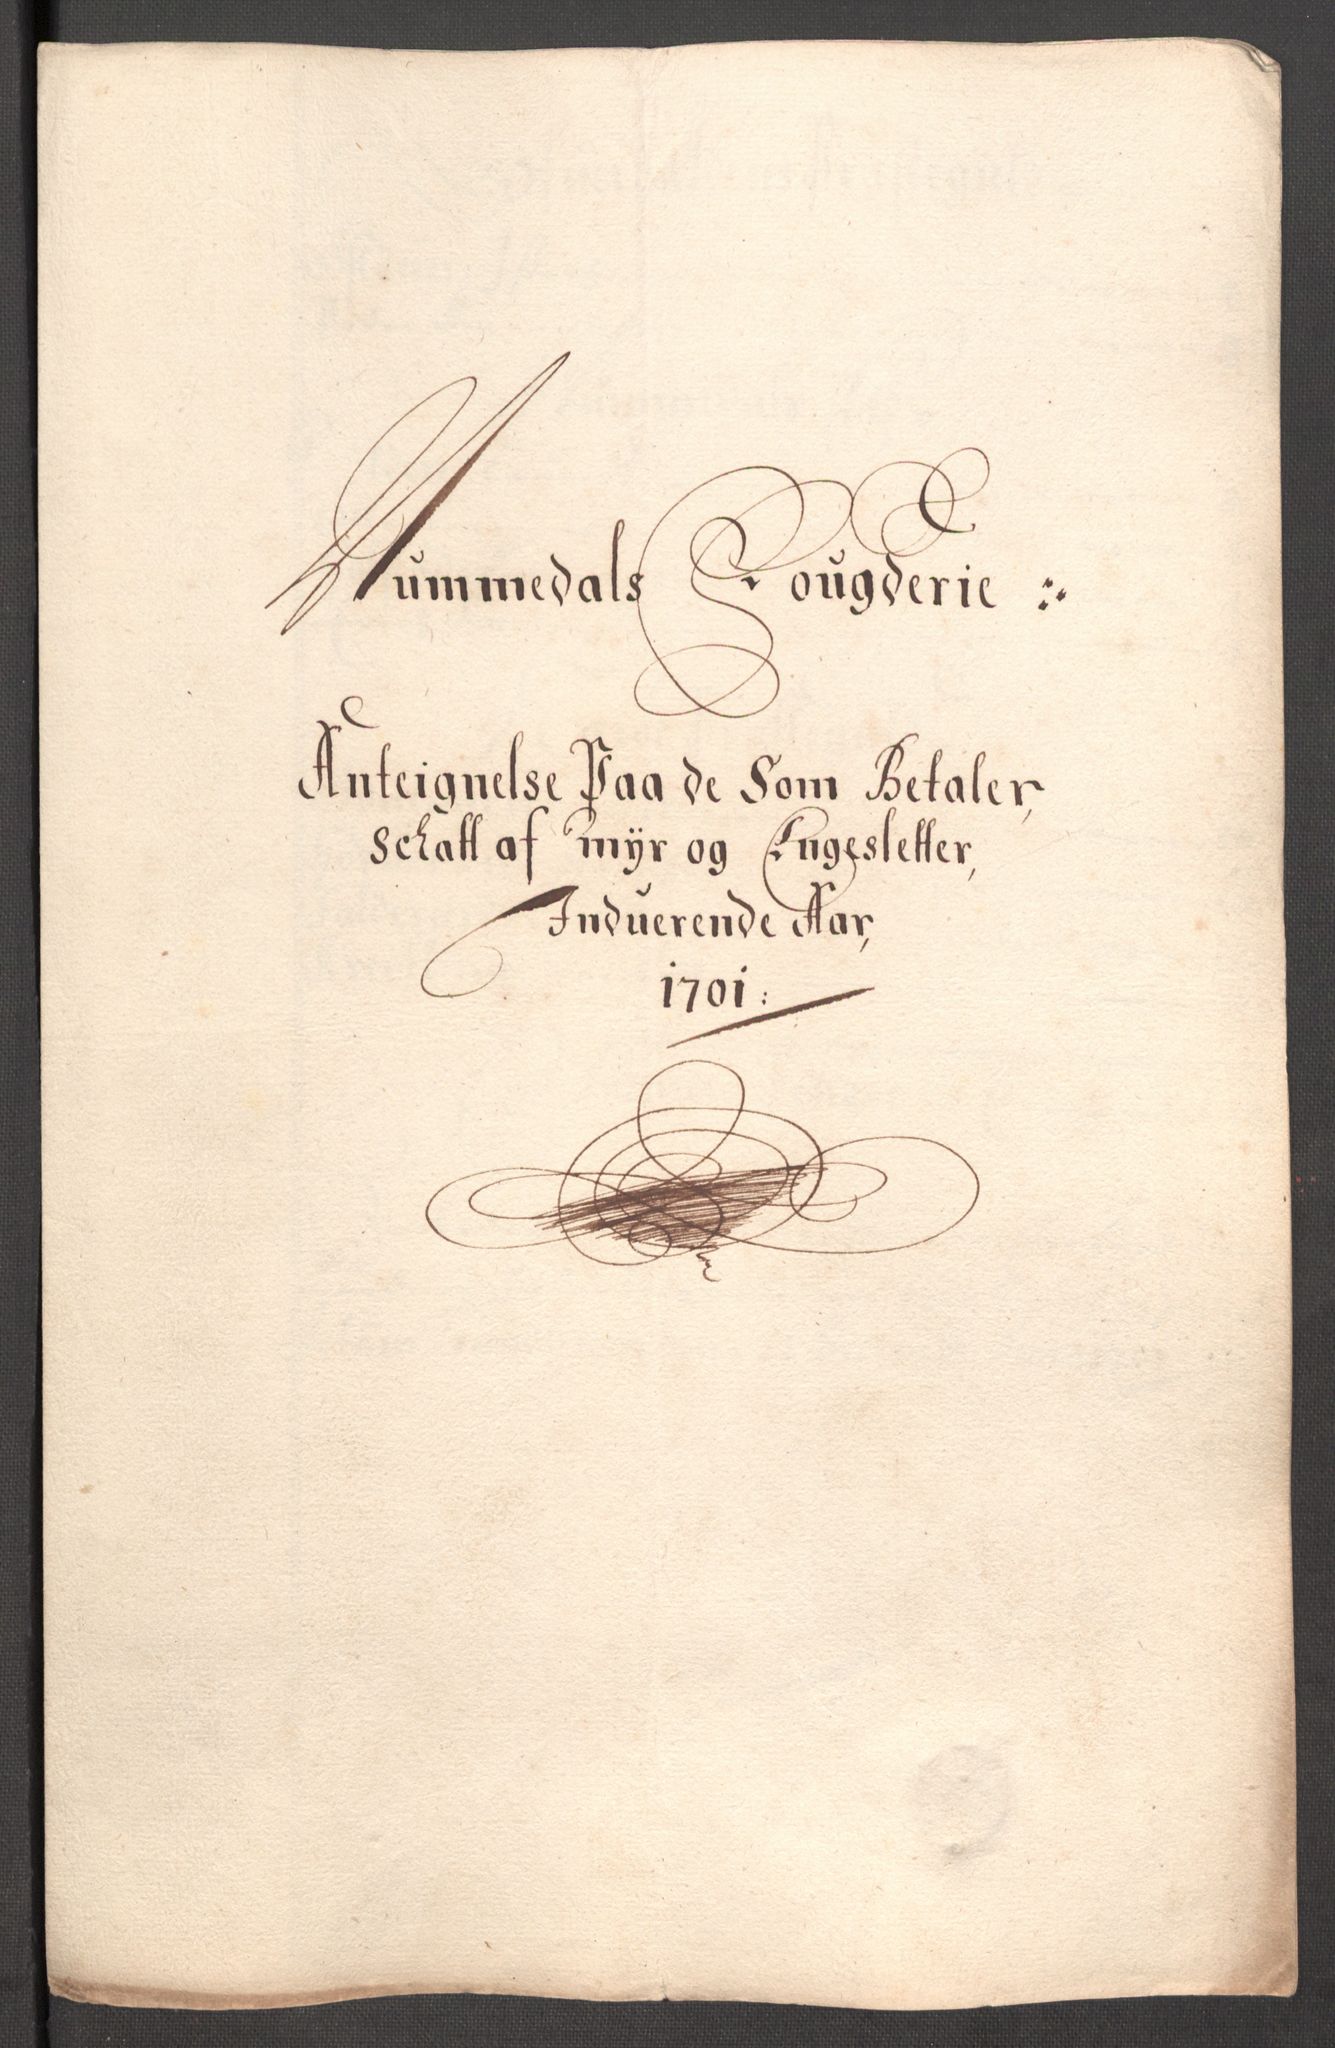 Nummedals Fougderie :·
Anteignelse Paa de Som Betaler,
schatt af myr og Engesletter,
Induerende Aar,
1701: